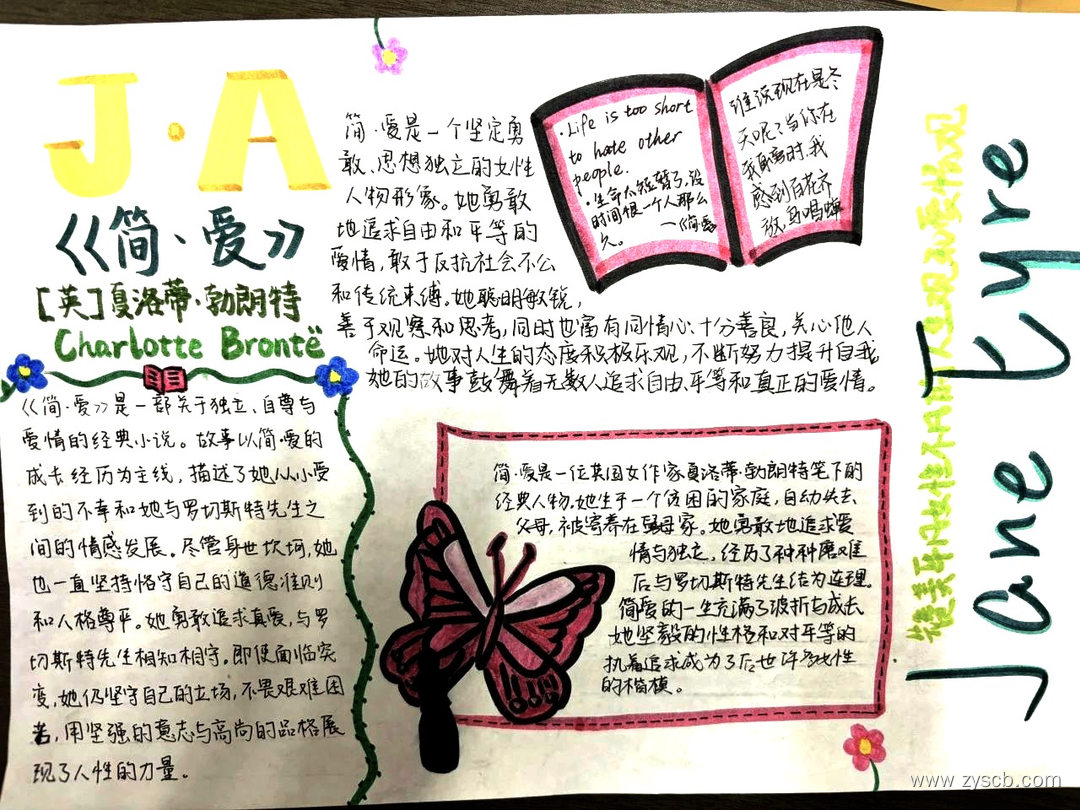 J·A
《简·爱》
[英]夏洛蒂·勃朗特
Charlotte Brontë
《简·爱》是一部关于独立、自尊与
爱情的经典小说。故事以简·爱的
成长经历为主线，描述了她从小受
到的不幸和她与罗切斯特先生之
间的情感发展。尽管身世坎坷，她
也一直坚持恪守自己的道德准则
和人格尊严。她勇敢追求真爱，与罗
切斯特先生相知相守。即使面临突
变，她仍坚守自己的立场，不畏艰难困
苦，用坚强的意志与高尚的品格展
现了人性的力量。
简·爱是一个坚定勇
敢、思想独立的女性
人物形象。她勇敢
地追求自由和平等的
爱情，敢于反抗社会不公
和传统束缚。她聪明敏锐，
善于观察和思考，同时也富有同情心、十分善良，关心他人
命运。她对人生的态度积极乐观，不断努力提升自我
她的故事鼓舞着无数人追求自由、平等和真正的爱情。
·Life is too short
to hate other
people.
·生命太短暂了，没
时间恨一个人那么
久。 —《简爱
谁说现在是冬
天呢？当你在
我身旁时，我
感到百花齐
放，鸟唱蝉
简·爱是一位英国女作家夏洛蒂·勃朗特笔下的
经典人物。她生于一个贫困的家庭，自幼失去
父母，被寄养在舅母家。她勇敢地追求爱
情与独立。经历了种种磨难
后与罗切斯特先生结为连理。
简爱的一生充满了波折与成长
她坚毅的性格和对平等的
执着追求成为了后世许多女性
的楷模。
Jane Eyre
www.zyscb.com